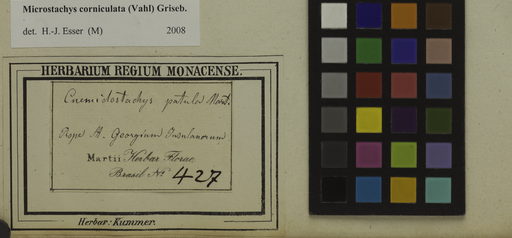 Microstachys corniculata (Vahl) Griseb.
det. H.-J. Esser (M) 2008
HERBARIUM REGIUM MONACENSE.
Cnemidostachys patula Mart.
Prope St. Georgium Insulanorum
Martii Herbar. Florae
Brasil. No. 427
Herbar: Kummer.